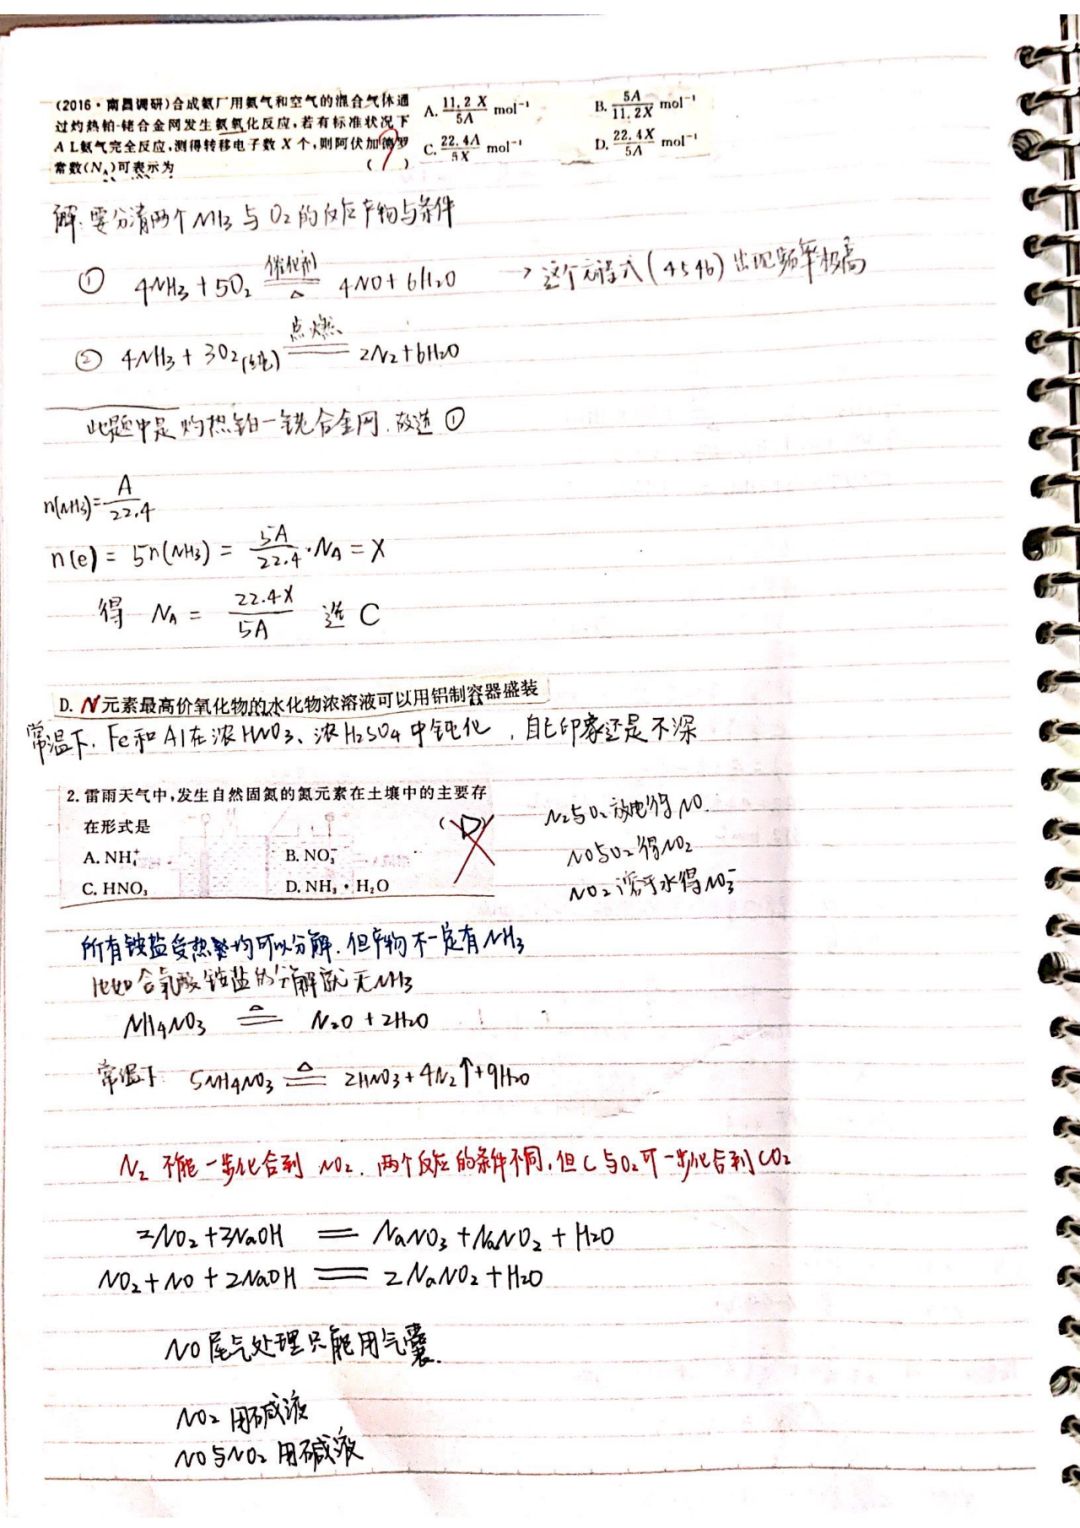 (2016·南昌调研)合成氨厂用氨气和空气的混合气体通
过灼热铂-铑合金网发生氨氧化反应,若有标准状况下
A L氨气完全反应,测得转移电子数 X 个,则阿伏加德罗
常数(N_A)可表示为 ( )
A. 11.2 X/5A mol⁻¹ B. 5A/11.2X mol⁻¹
C. 22.4A/5X mol⁻¹ D. 22.4X/5A mol⁻¹
解:要分清两个NH3与O2的反应产物与条件
① 4NH3+5O2 催化剂═△ 4NO+6H2O → 这个方程式(4546)出现频率极高
② 4NH3+3O2(纯) 点燃═ 2N2+6H2O
此题中是灼热铂一铑合金网.故选①
n(NH3)=A/22.4
n(e)=5n(NH3)=5A/22.4·NA=X
得 NA=22.4X/5A 选 C
D. N元素最高价氧化物的水化物浓溶液可以用铝制容器盛装
常温下.Fe和Al在浓HNO3、浓H2SO4中钝化,自己印象还是不深
2. 雷雨天气中,发生自然固氮的氮元素在土壤中的主要存
在形式是 (D)
A. NH₄⁺ B. NO₃⁻
C. HNO₃ D. NH₃·H₂O
N2与O2放电得NO.
NO与O2得NO2
NO2溶于水得NO3⁻
所有铵盐受热均可以分解.但产物不一定有NH3
比如含氧酸铵盐的分解就无NH3
NH4NO3 ═△ N2O+2H2O
常温下 5NH4NO3 ═△ 2HNO3+4N2↑+9H2O
N2 不能一步化合到 NO2.两个反应的条件不同,但C与O2可一步化合到CO2
2NO2+2NaOH ═ NaNO3+NaNO2+H2O
NO2+NO+2NaOH ═ 2NaNO2+H2O
NO尾气处理只能用气囊.
NO2 用碱液
NO与NO2 用碱液